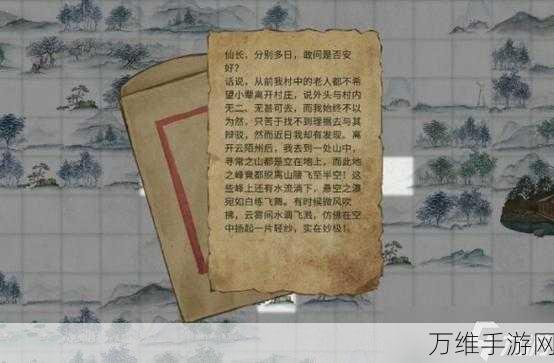 仙长，分别多日，敢问是否安
好？
话说，从前我村中的老人都不希
望小辈离开村庄，说外头与村内
无二，无甚可去，而我始终不以
为然，只苦于找不到理据去与其
辩驳，然而近日我却有发现。离
开云陌州后，我去到一处山中，
寻常之山都是立在地上，而此地
之峰竟都脱离山腰飞至半空！这
些峰上还有水流淌下，悬空之瀑
宛如白练飞舞。有时候微风吹
拂，云雾间水滴飞溅，仿佛在空
中扬起一片轻纱，实在妙极！
万维手游网